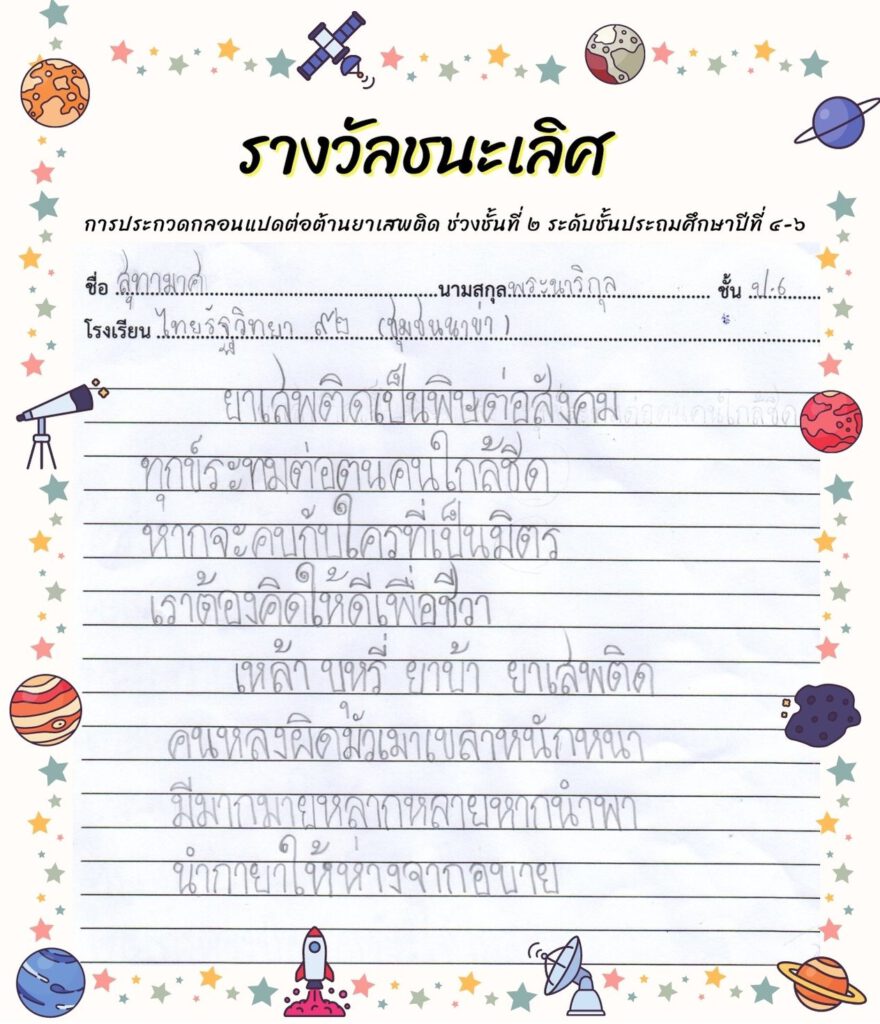 รางวัลชนะเลิศ
การประกวดกลอนแปดต่อต้านยาเสพติด ช่วงชั้นที่ ๒ ระดับชั้นประถมศึกษาปีที่ ๔-๖
ชื่อ สุทามาศ นามสกุล พระนาริกุล ชั้น ป.๖
โรงเรียน ไทยรัฐวิทยา ๙๒ (ชุมชนนาข่า)
ยาเสพติดเป็นพิษต่อสังคม
ทุกข์ระทมต่อตนคนใกล้ชิด
หากจะคบกับใครที่เป็นมิตร
เราต้องคิดให้ดีเพื่อชีวา
เหล้า บุหรี่ ยาบ้า ยาเสพติด
คนหลงผิดมัวเมาเขลาหนักหนา
มีมากมายหลากหลายหากนำพา
นำกายาให้ห่างจากอบาย